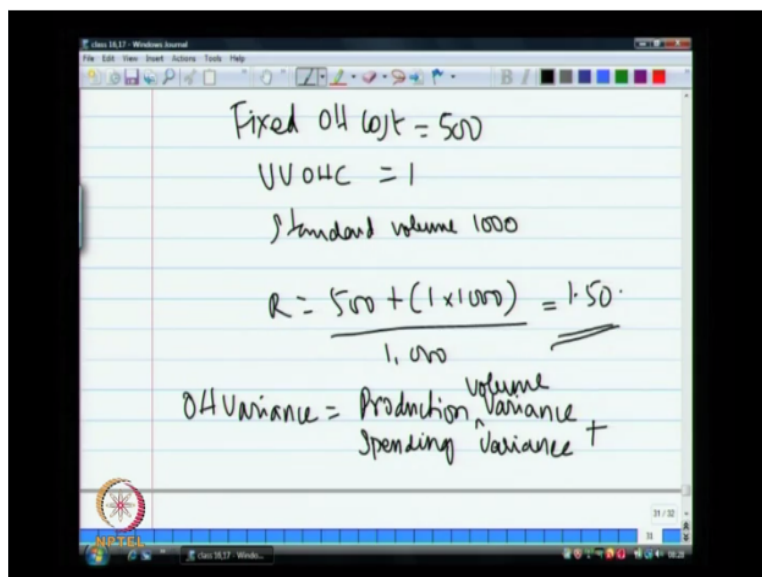 class 16,17 - Windows Journal
File Edit View Insert Actions Tools Help
B I
Fixed OH Cost = 500
UVOHC = 1
Standard volume 1000
R = 500 + (1 x 1000) = 1.50.
1,000
volume
OH Variance = Production ^ Variance
Spending Variance +
31 / 32
31
NPTEL
class 16,17 - Windo...
08:28